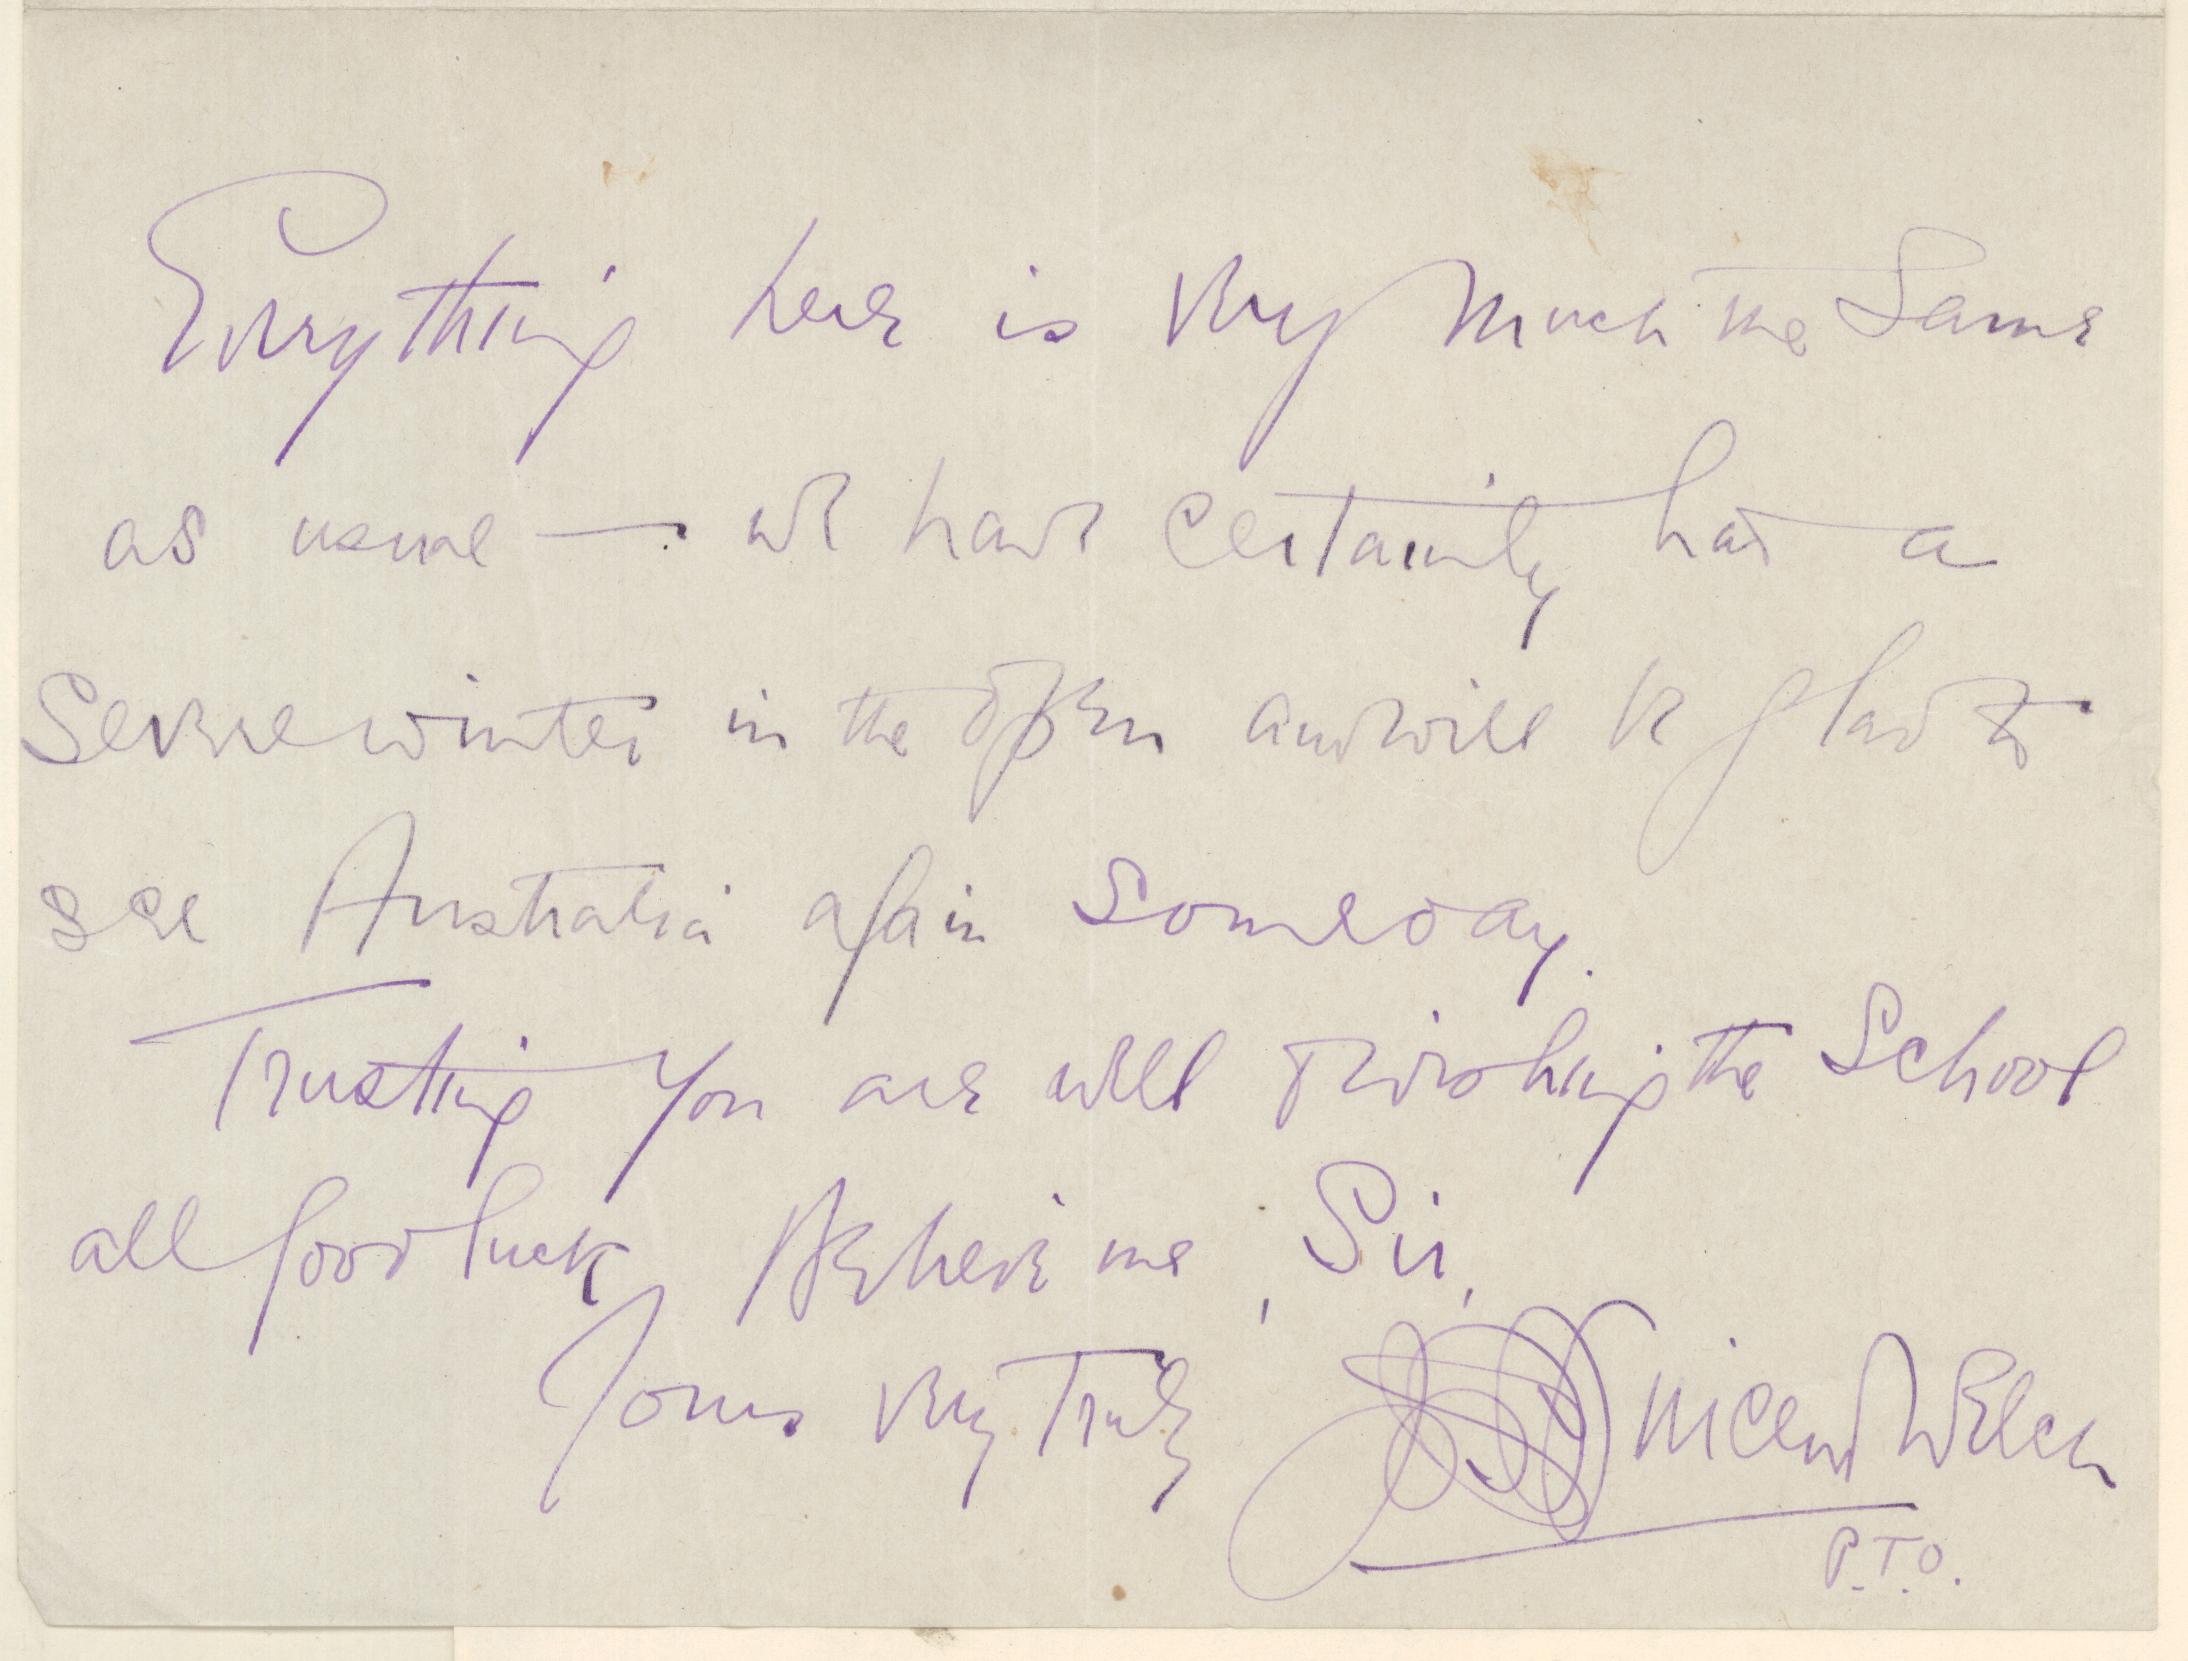 Everything here is very much the same
as usual — we have certainly had a
severe winter in the open and will be glad to
see Australia again someday.
Trusting you are well & wishing the School
all good luck Believe me, Sir,
Yours very Truly Vincent Welch
P.T.O.